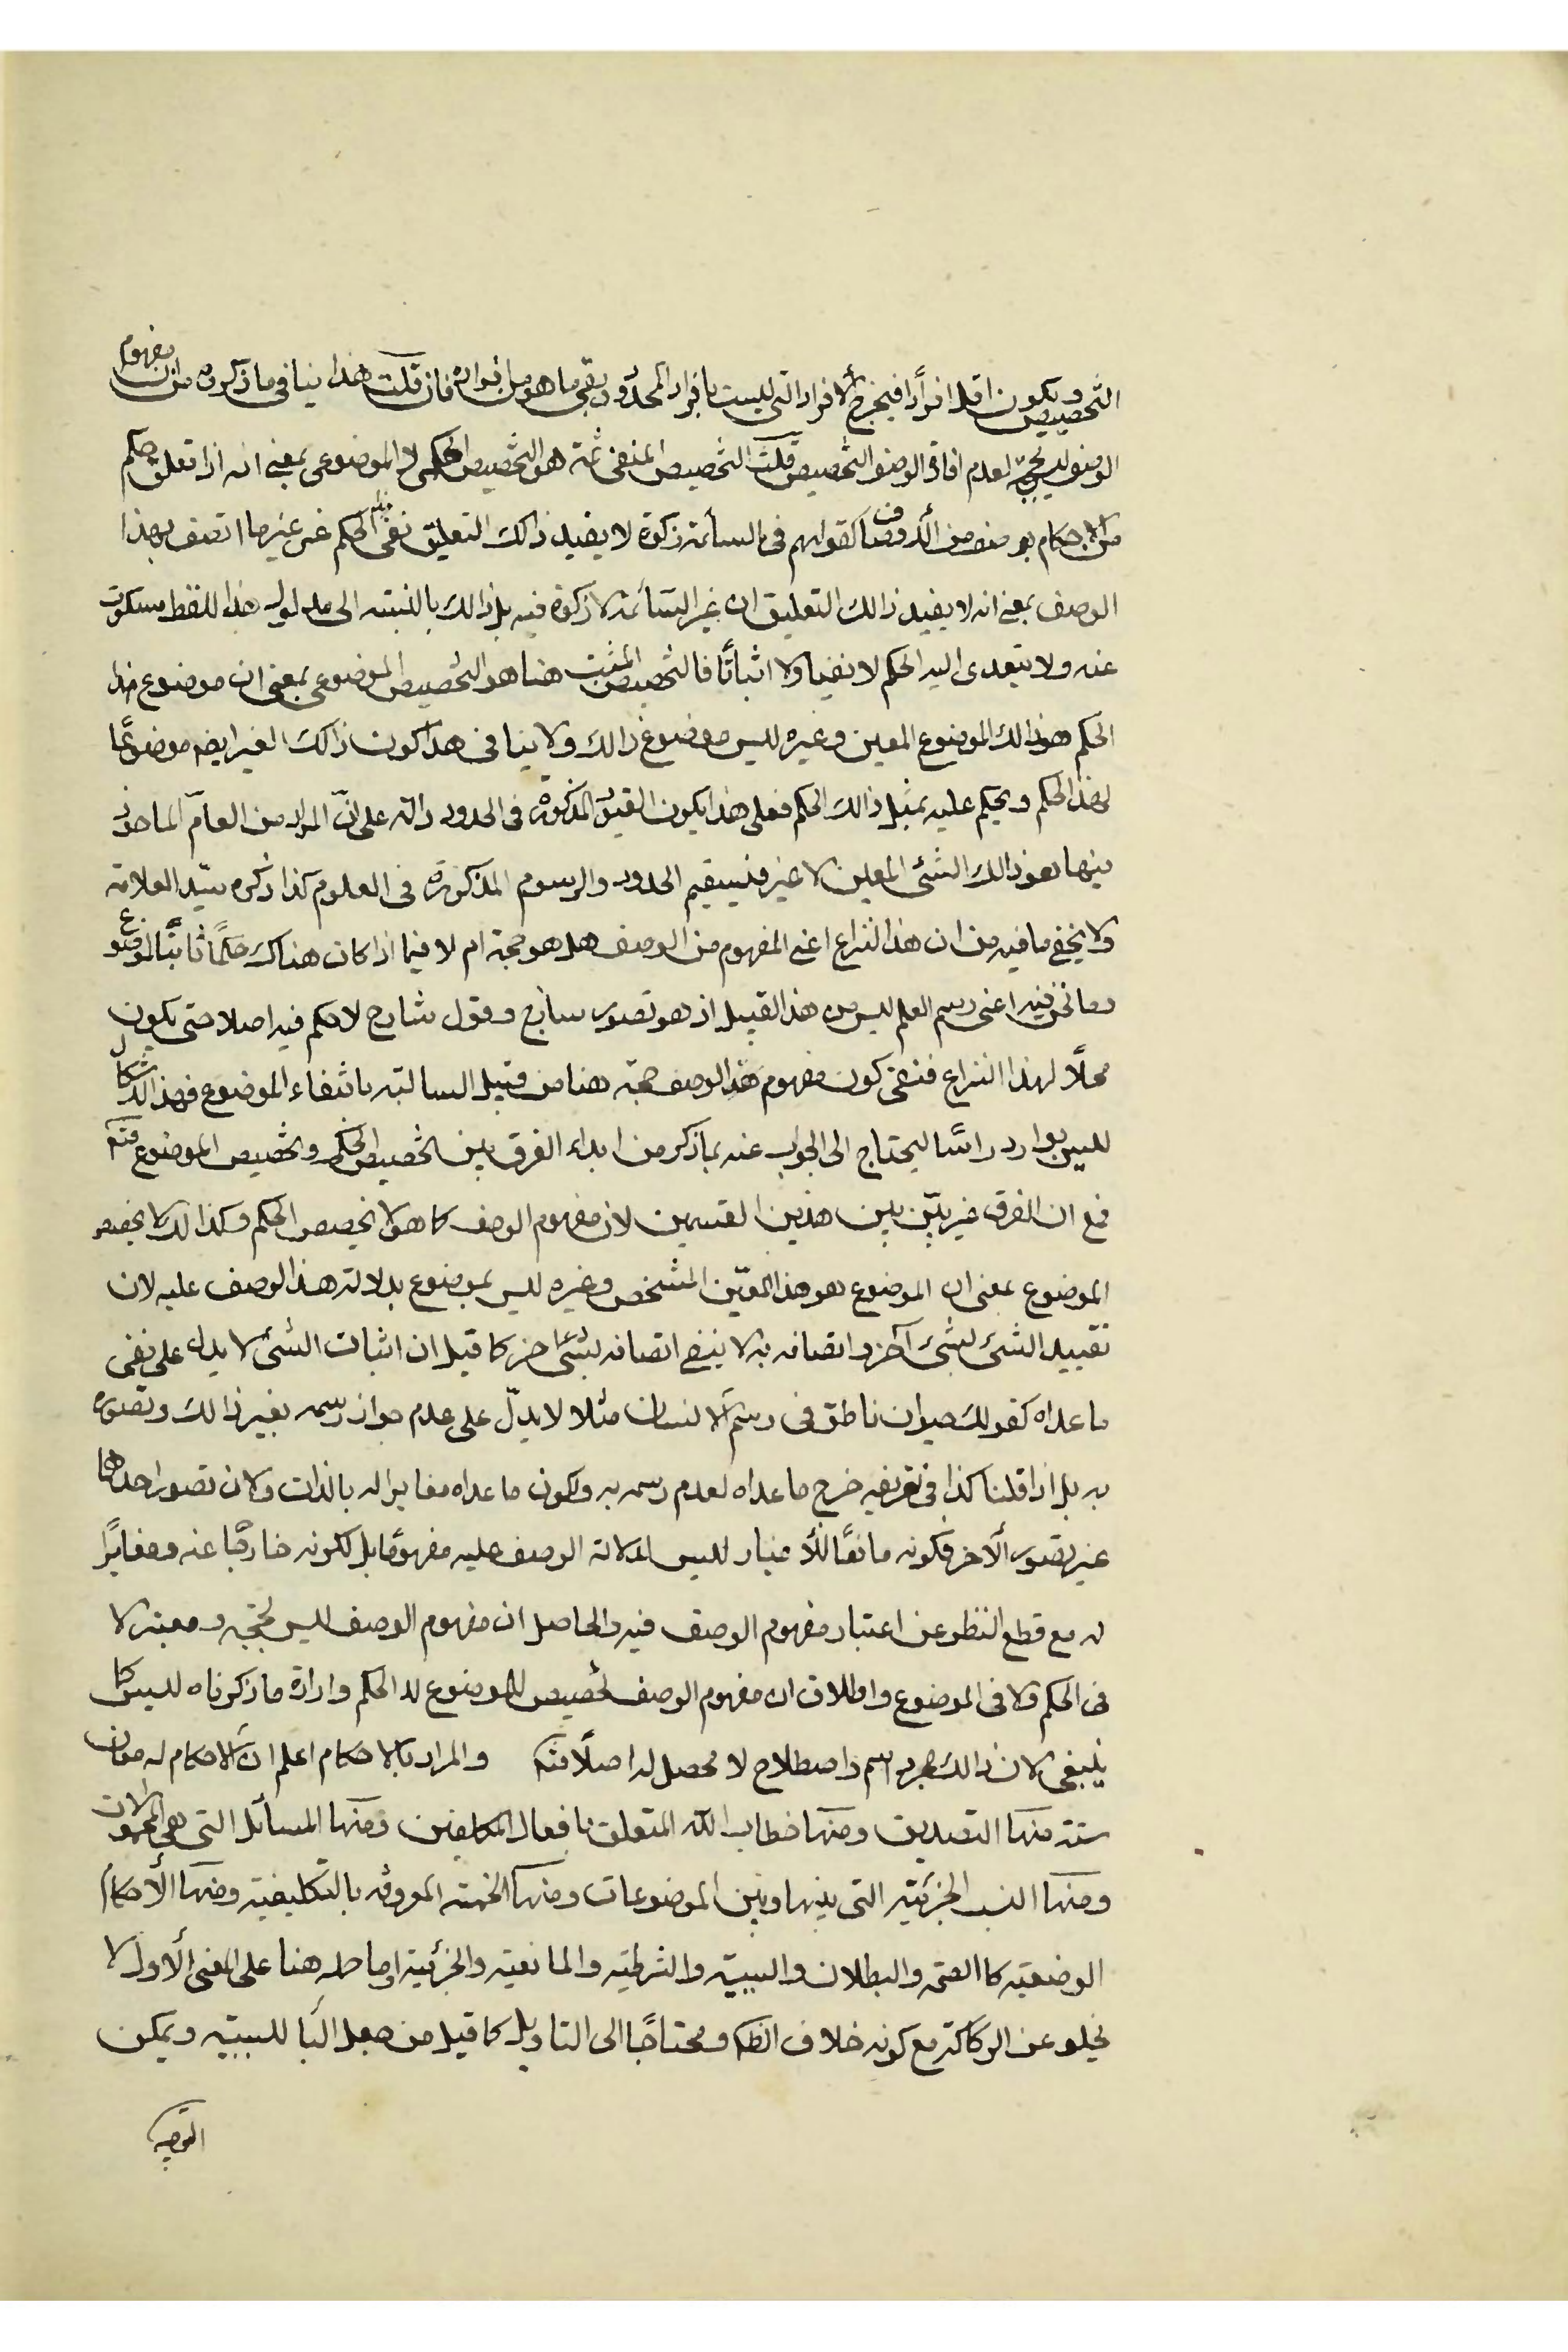 التخصيص ويكون اقل افرادًا فيخرج الافراد التى ليست بافراد المحدود ويبقى ما هو من افراده فان قلت هذا ينافى ما ذكروه من ان مفهوم
الوصف ليس بحجة لعدم افادة الوصف التخصيص قلت التخصيص المنفى ثمة هو التخصيص الحكمى لا الموضوعى بمعنى انه اذا تعلق حكم
من الاحكام بوصف من الاوصاف كقولهم فى السائمة زكوة لا يفيد ذالك التعليق نفى الحكم عن غير ما اتصف بهذا
الوصف بمعنى انه لا يفيد ذالك التعليق ان غير السائمة لا زكوة فيه بل ذالك بالنسبته الى مدلول هذا اللفظ مسكوت
عنه ولا يتعدى اليه الحكم لا نفيا ولا اثباتًا فالتخصيص المثبت هنا هو التخصيص الموضوعى بمعنى ان موضوع هذا
الحكم هو ذالك الموضوع المعين وغيره ليس موضوع ذالك ولا ينافى هذا كون ذالك الغير ايضم موضوعًا
لهذا الحكم ويحكم عليه بمثل ذالك الحكم فعلى هذا يكون القيود المذكورة فى الحدود دالة على انّ المراد من العامّ الماخوذ
فيها هو ذالك الشئى المعين لا غير فيستقيم الحدود والرسوم المذكورة فى العلوم كذا ذكره سيّد العلامة
ولا يخفى ما فيه من ان هذا النزاع اعنى المفهوم من الوصف هل هو حجة ام لا فيما اذا كان هناك حكمًا ثابتًا لموضوع
وما نحن فيه اعنى رسم العلم ليس من هذا القبيل اذ هو تصور ساذج وقول شارح لا حكم فيه اصلا حتى يكون
محلًا لهذا النزاع فنفى كون مفهوم هذا الوصف حجة هنا من قبيل السالبته بانتفاء الموضوع فهذا الاشكال
ليس بوارد راسًا ليحتاج الى الجواب عنه بما ذكر من ابداء الفرق بين تخصيص الحكم وتخصيص الموضوع فتكم
فمع ان الفرق غير بيّن بين هذين القسمين لان مفهوم الوصف كما هو لا يخصص الحكم وكذالك لا يخصص
الموضوع بمعنى ان الموضوع هو هذا المعيّن المشخص وغيره ليس بموضوع بدلالة هذا الوصف عليه لان
تقييد الشئ بشئ آخر واتصافه به لا ينفى اتصافه بشئ اخر كما قيل ان اثبات الشئ لا يدل على نفى
ما عداه كقولك حيوان ناطق فى رسم الانسان مثلا لا يدلّ على عدم جواز رسمه بغير ذالك وتصوره
به بل اذا قلنا كذا فى تعريفه خرج ما عداه لعدم رسمه به ولكون ما عداه مغايرا له بالذات ولان تصور احدهما
غير تصور الآخر فكونه مانعًا للاغيار ليس لدلالة الوصف عليه مفهومًا بل لكونه خارجًا عنه ومغايرًا
له مع قطع النظر عن اعتبار مفهوم الوصف فيه والحاصل ان مفهوم الوصف ليس بحجة ومعتبر لا
فى الحكم ولا فى الموضوع واطلاق ان مفهوم الوصف تخصيص للموضوع لا الحكم وارادة ما ذكرناه ليس كما
ينبغى لان ذالك مجرد اسم واصطلاح لا محصل له اصلًا فتكم والمراد بالاحكام اعلم ان للاحكام له معان
ستة منها التصديق ومنها خطاب الله المتعلق بافعال المكلفين ومنها المسائل التى هى المحمولات
ومنها النسب الجزئية التى بينها وبين الموضوعات ومنها الخمسة المعروفه بالتكليفية ومنها الأحكام
الوضعية كا الصحة والبطلان والسببيّة والشرطية والمانعية والجزئية اما حمله هنا على المعنى الأول لا
يخلو عن الركاكة مع كونه خلاف الظكم ومحتاجًا الى التاويل كما قيل من جعل البا للسببية ويمكن
التوجيه